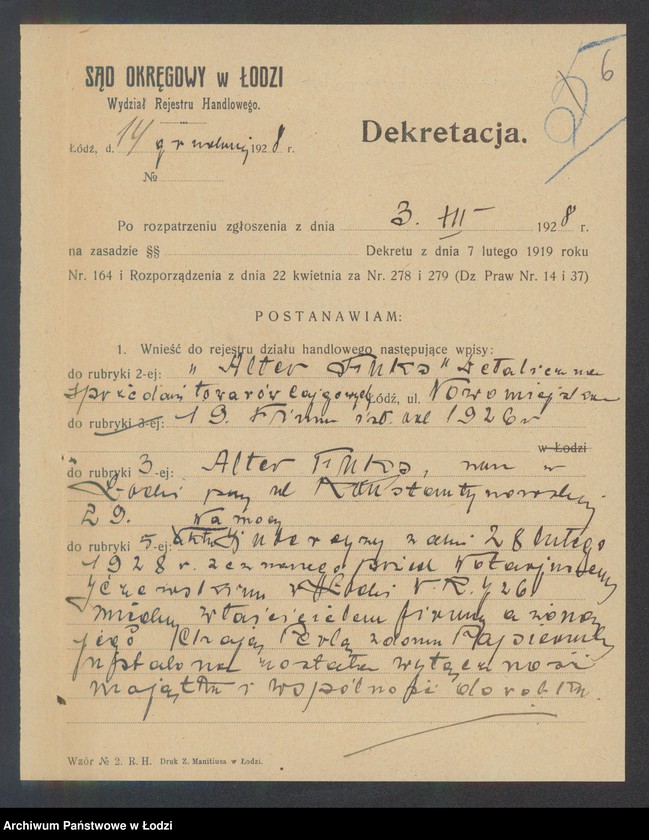 6
SĄD OKRĘGOWY w ŁODZI
Wydział Rejestru Handlowego.
Dekretacja.
Łódź, d. 14 grudnia 1928 r.
№
Po rozpatrzeniu zgłoszenia z dnia 3. III 1928 r.
na zasadzie §§ Dekretu z dnia 7 lutego 1919 roku
Nr. 164 i Rozporządzenia z dnia 22 kwietnia za Nr. 278 i 279 (Dz Praw Nr. 14 i 37)
POSTANAWIAM:
1. Wnieść do rejestru działu handlowego następujące wpisy:
do rubryki 2-ej: "Alter Fuks" Detaliczna
sprzedaż towarów Łódź, ul. Nowomiejska
do rubryki 3-ej: 19. Firma istn. od 1926 r
w Łodzi
do rubryki 3-ej: Alter Fuks, zam. w
Łodzi przy ul Konstantynowskiej
29. Na mocy
do rubryki 5-ej: aktu z dnia 28 lutego
1928 r. zeznanego przed Notarjuszem
w Łodzi N. R. 726
między właścicielem firmy a żoną
jego Chają Perlą z domu
ustalona została wyłączność
majątku i wspólność dorobku.
Wzór № 2. R. H. Druk Z. Manitiusa w Łodzi.
Archiwum Państwowe w Łodzi